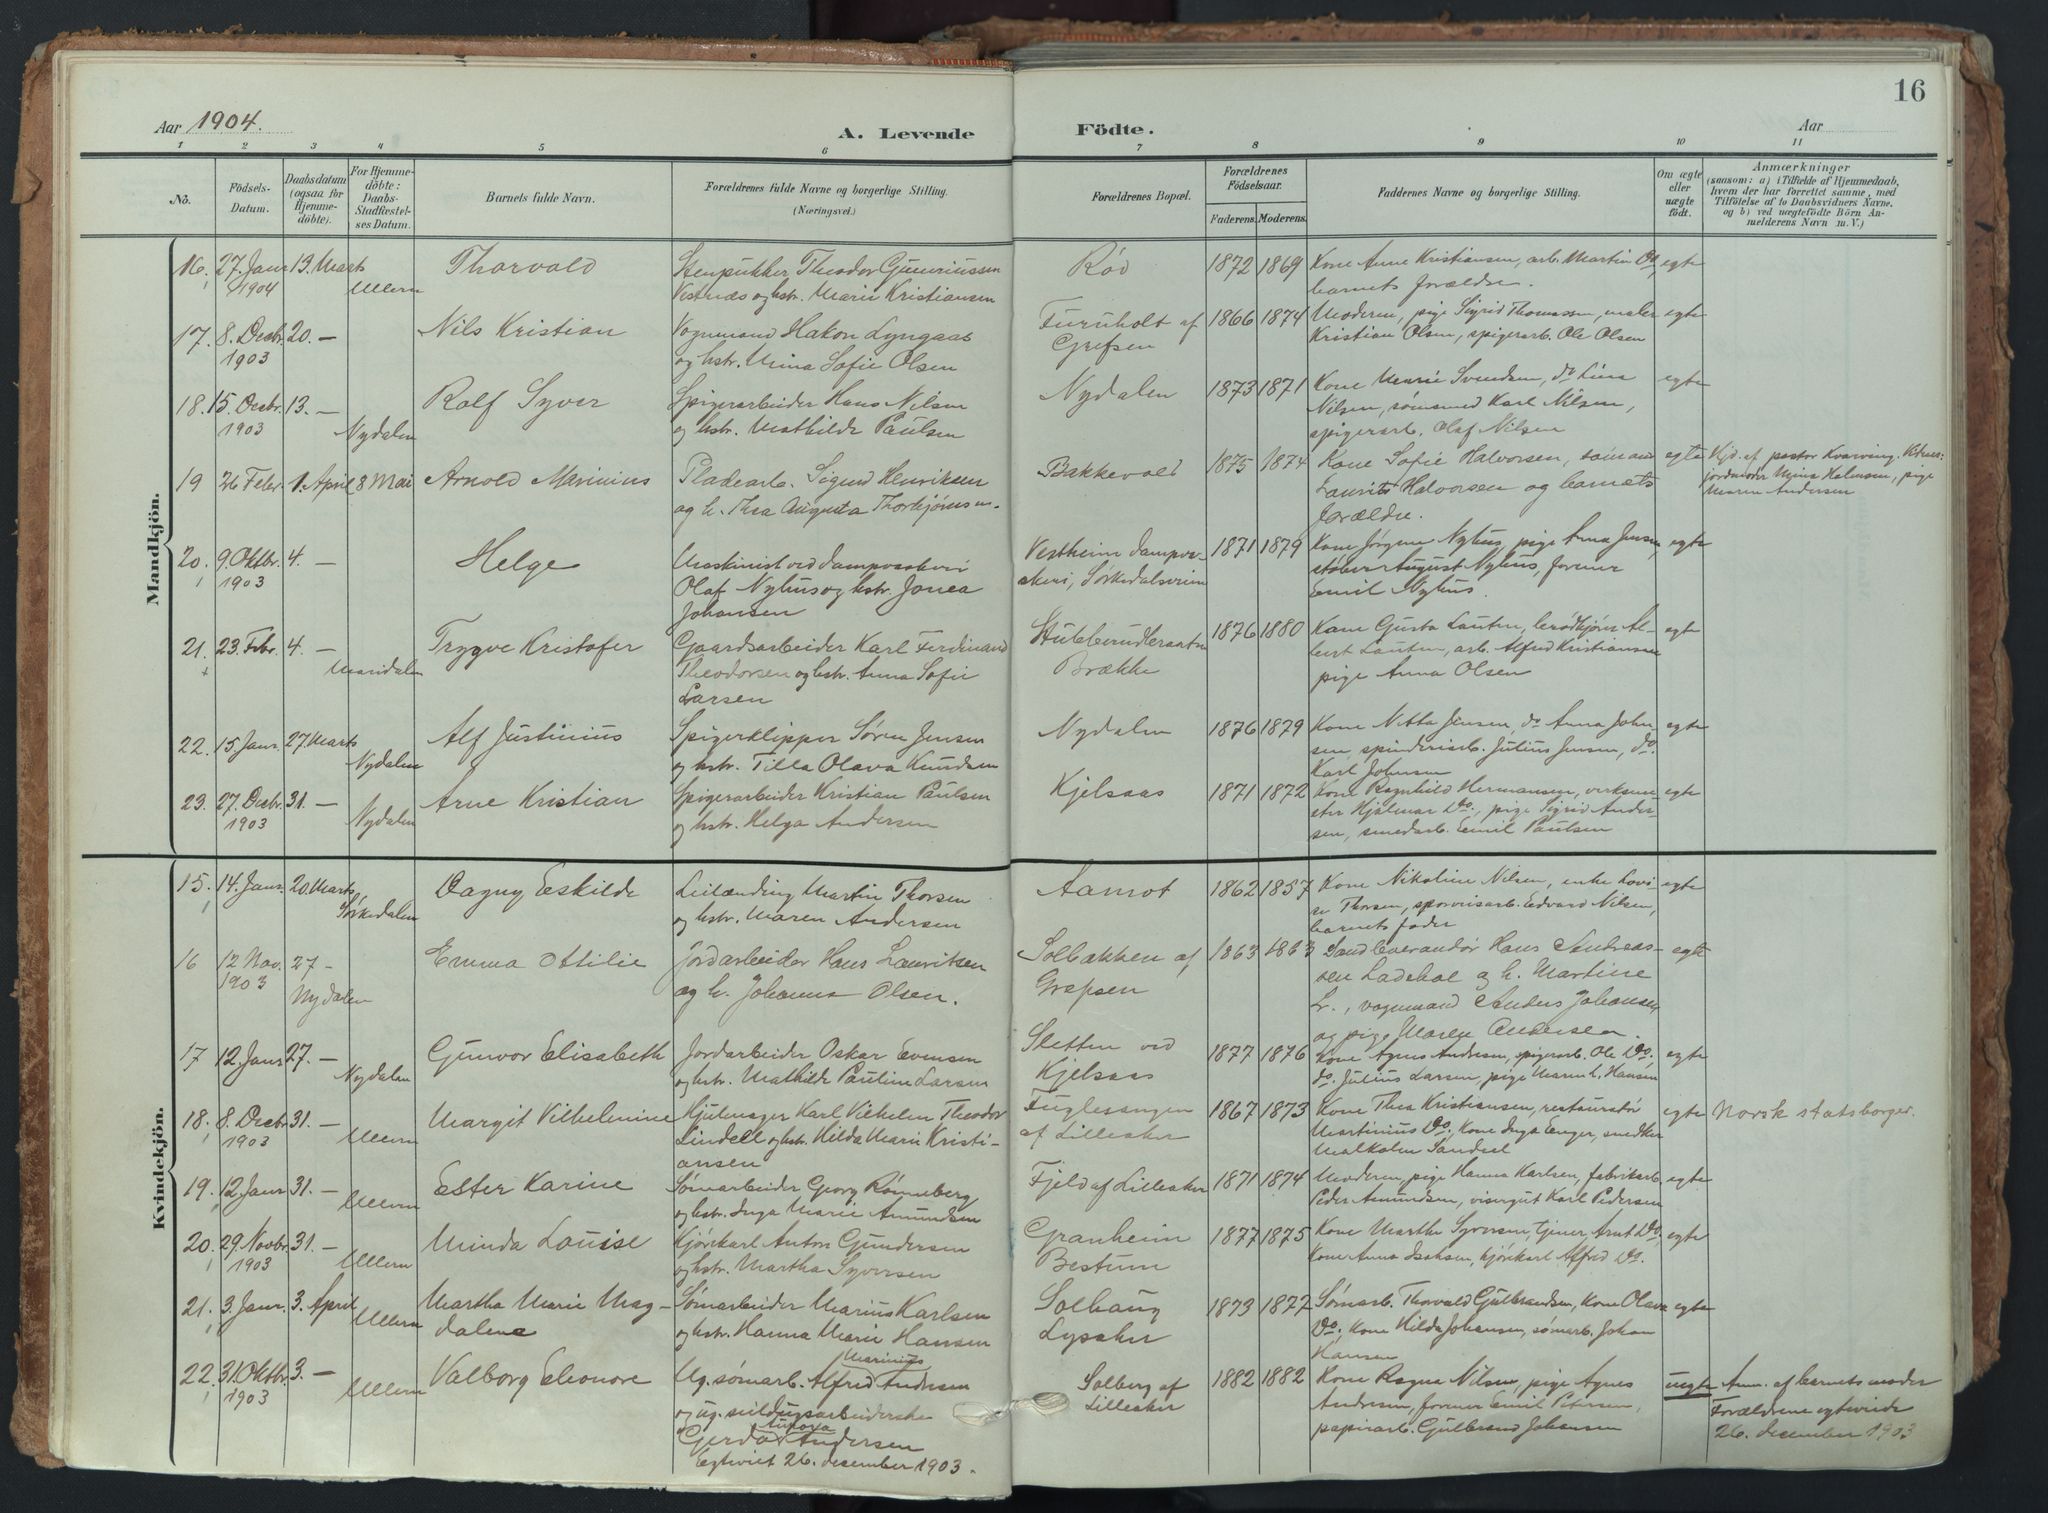 16
Aar 1904.
A. Levende
Födte.
Aar
1 2 3 4 5 6 7 8 9 10 11
No.
Födsels-Datum.
Daabsdatum (ogsaa for Hjemme-döbte).
For Hjemme-döbte: Daabs-Stadfæstel-ses Datum.
Barnets fulde Navn.
Forældrenes fulde Navne og borgerlige Stilling. (Næringsvei.)
Forældrenes Bopæl.
Forældrenes Födselsaar.
Faderens. Moderens.
Faddernes Navne og borgerlige Stilling.
Om ægte eller uægte födt.
Anmærkninger
(saasom: a) i Tilfælde af Hjemmedaab, hvem der har forrettet samme, med Tilföielse af to Daabsvidners Navne, og b) ved uægtefödte Börn An-melderens Navn m. V.)
Mandkjön.
16. 27. Janr 13. Marts Thorvald Stenpukker Theodor Guneriussen Rød 1872 1869 Kone Anne Kristiansen, arb. Martin Do egte
1904 Ullern Vestnæs og hstr. Marie Kristiansen barnets forældre.
17. 8. Decbr. 20. — Nils Kristian Vognmand Hakon Lyngaas Furuholt af 1866 1874 Moderen, pige Sigrid Thomassen, maler egte
1903 og hstr. Mina Sofie Olsen Grefsen Kristian Olsen, spigerarb. Ole Olsen
18. 15. Decbr. 13. — Rolf Syver Spigerarbeider Hans Nilsen Nydalen 1873 1871 Kone Marie Svendsen, do Lina egte
1903 Nydalen og hstr. Mathilde Paulsen Nilsen, sømsmed Karl Nilsen,
spigerarb. Olaf Nilsen
19 26 Febr. 1. April 8 Mai Arnold Marinius Pladearb. Sigurd Henriksen Bakkevold 1875 1874 Kone Sofie Halvorsen, egte Hjd. af pastor
og h. Thea Augusta Thorbjørnsen. Laurits Halvorsen og barnets jordmoder Mina Halvorsen, pige
forældre. Maren Andersen
20. 9. Oktbr. 4. — Helge Maskinist ved dampvaskeri Vestheim dampva- 1871 1879 Kone Jørgine Nyhus, pige Anna Jensen, egte
1903 Olaf Nyhus og hstr. Jonea skeri, Sørkedalsveien støber August Nyhus, former
Johansen Emil Nyhus.
21. 23. Febr. 4. — Trygve Kristofer Gaardsarbeider Karl Ferdinand 1876 1880 Kone Gusta Lauten, brødkjører Al- egte
Maridalen Theodorsen og hstr. Anna Sofie Brække bert Lauten, arb. Alfred Kristiansen
Larsen pige Anna Olsen
22. 15. Janr. 27. Marts Alf Justinius Spigerklipper Søren Jensen Nydalen 1876 1879 Kone Nitta Jensen, do Anna John- egte
Nydalen og hstr. Tilla Olava Knudsen sen, spinderiarb. Julius Jensen, do.
Karl Johnsen
23. 27. Decbr. 31. — Arne Kristian Spigerarbeider Kristian Paulsen Kjelsaas 1871 1872 Kone Ragnhild Hermansen, virksme- egte
1903 Nydalen og hstr. Helga Andersen ster Hjalmar Do., pige Sigrid Ander-
sen, smedarb. Emil Paulsen
Kvindekjön.
15. 14. Janr. 20. Marts Dagny Eskilde Leilænding Martin Thorsen Aamot 1862 1857 Kone Nikoline Nilsen, enke Lovi- egte
Sørkedalen og hstr. Maren Andersen se Thorsen, sporveisarb. Edvard Nilsen,
barnets fader
16 12 Nov. 27 - Emma Ottilie Jordarbeider Hans Lauritsen Solbakken af 1863 1863 Sandleverandør Hans Andreas- egte
1903 Nydalen og h. Johanna Olsen. Grefsen sen Ladehol og h. Martine
L., vognmand Anders Johansen
og pige Maren Andersen.
17 12 Janr 27. — Gunvor Elisabeth Jordarbeider Oskar Evensen Sletten ved 1877 1876 Kone Agnes Andersen, spigerarb. Ole Do. egte
Nydalen og hstr. Mathilde Pauline Larsen Kjelsaas do. Julius Larsen, pige Maren L. Hansen
18. 8. Decbr 31. — Margit Vilhelmine Hjulmager Karl Vilhelm Theodor Fuglesangen 1867 1873 Kone Thea Kristiansen, restauratør egte Norsk statsborger.
1903 Ullern Lindell og hstr. Hilda Marie Kristi- af Lilleaker Martinius Do. Kone Inga Enger, snedker
ansen Malkolm Sandnel
19. 12. Janr 31. — Ester Karine Sømarbeider Georg Rønneberg Fjeld af Lilleaker 1871 1874 Moderen, pige Hanna Karlsen, fabrikarb. egte
Ullern og hstr. Inga Marie Amundsen Peder Amundsen, visergut Karl Pedersen
20. 29. Novbr. 31. — Minda Louise Kjørekarl Anton Gundersen Granheim 1877 1875 Kone Martha Syversen, tjener Arnt Do, egte
1903 Ullern og hstr. Martha Syversen Bestum Kone Anna Isaksen, kjørekarl Alfred Do.
21. 3. Janr. 3. April Martha Marie Mag- Sømarbeider Marius Karlsen Solhaug 1873 1877 Sømarb. Thorvald Gulbrandsen, Kone Olava egte
Ullern dalene og hstr. Hanna Marie Hansen Lysaker Do. Kone Hilda Johansen, sømarb. Johan
Hansen
22. 31. Oktbr. 3. — Valborg Eleonore Ug. sømarb. Alfred Marinius Andersen Solberg af 1882 1882 Kone Ragna Nilsen, pige Agnes uegte Anm. af barnets moder
1903 Ullern og ug. seildugsarbeiderske Lilleaker Andersen, former Emil Petersen, Forældrene egteviede
Gerda Aurora Andersen papirarb. Gulbrand Johansen 26. december 1903
Egteviet 26. desember 1903.